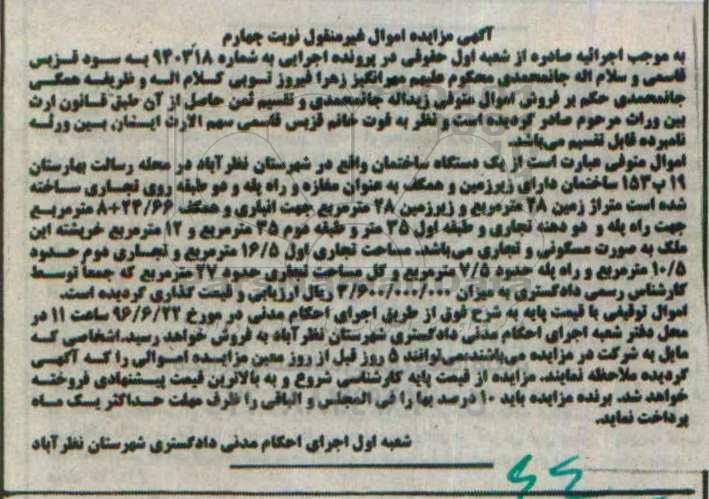 آگهی مزایده اموال غیرمنقول نوبت چهارم
به موجب اجرائیه صادره از شعبه اول حقوقی در پرونده اجرایی به شماره ۹۴۰۳۱۸ به سود قزبس
قاسمی و سلام اله جانمحمدی محکوم علیهم مهرانگیز زهرا فیروز ثوبی کلام اله و ظریفه همگی
جانمحمدی حکم بر فروش اموال متوفی زیداله جانمحمدی و تقسیم ثمن حاصل از آن طبق قانون ارث
بین وراث مرحوم صادر گردیده است و نظر به فوت خانم قزبس قاسمی سهم الارث ایشان بین ورثه
نامبرده قابل تقسیم می‌باشد.
اموال متوفی عبارت است از یک دستگاه ساختمان واقع در شهرستان نظرآباد در محله رسالت بهارستان
۱۹ پ۱۵۳ ساختمان دارای زیرزمین و همکف به عنوان مغازه و راه پله و دو طبقه روی تجاری ساخته
شده است متراژ زمین ۴۸ مترمربع و زیرزمین ۴۸ مترمربع جهت انباری و همکف ۲۴/۶۶+۸ مترمربع
جهت راه پله و دو دهنه تجاری و طبقه اول ۳۵ متر و طبقه دوم ۳۵ مترمربع و ۱۲ مترمربع خرپشته این
ملک به صورت مسکونی و تجاری می‌باشد. مساحت تجاری اول ۱۶/۵ مترمربع و تجاری دوم حدود
۱۰/۵ مترمربع و راه پله حدود ۷/۵ مترمربع و کل مساحت تجاری حدود ۲۷ مترمربع که جمعاً توسط
کارشناس رسمی دادگستری به میزان ۳/۶۰۰/۰۰۰/۰۰۰ ریال ارزیابی و قیمت گذاری گردیده است.
اموال توقیفی با قیمت پایه به شرح فوق از طریق اجرای احکام مدنی در مورخ ۹۶/۶/۲۲ ساعت ۱۱ در
محل دفتر شعبه اجرای احکام مدنی دادگستری شهرستان نظرآباد به فروش خواهد رسید.اشخاصی که
مایل به شرکت در مزایده می‌باشند‌می‌توانند ۵ روز قبل از روز معین مزایده اموالی را که آگهی
گردیده ملاحظه نمایند. مزایده از قیمت پایه کارشناسی شروع و به بالاترین قیمت پیشنهادی فروخته
خواهد شد. برنده مزایده باید ۱۰ درصد بها را فی المجلس و الباقی را ظرف مهلت حداکثر یک ماه
پرداخت نماید.
شعبه اول اجرای احکام مدنی دادگستری شهرستان نظرآباد